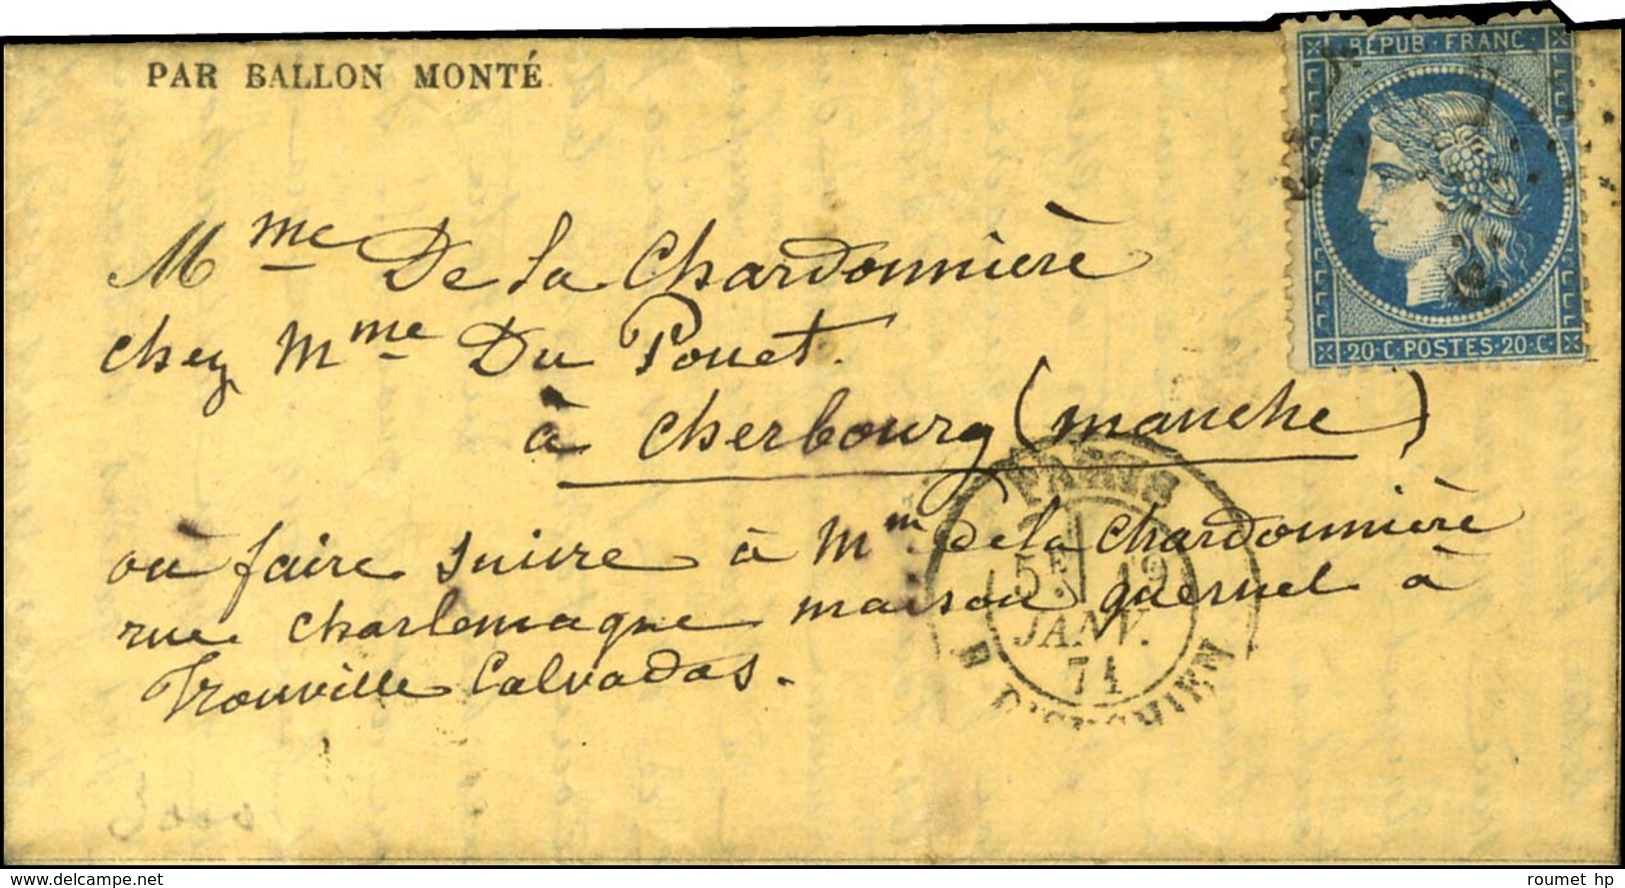 PAR BALLON MONTÉ
REPUB · FRANC
20·C·POSTES·20·C
Mme De la Chardonnière
chez Mme Du Ponet.
à Cherbourg (manche)
ou faire suivre à Mm de la Chardonnière
rue Charlemagne maison quernel à
Trouville Calvados.
PARIS
5E 19
JANV.
71
delcampe.net
roumet hp